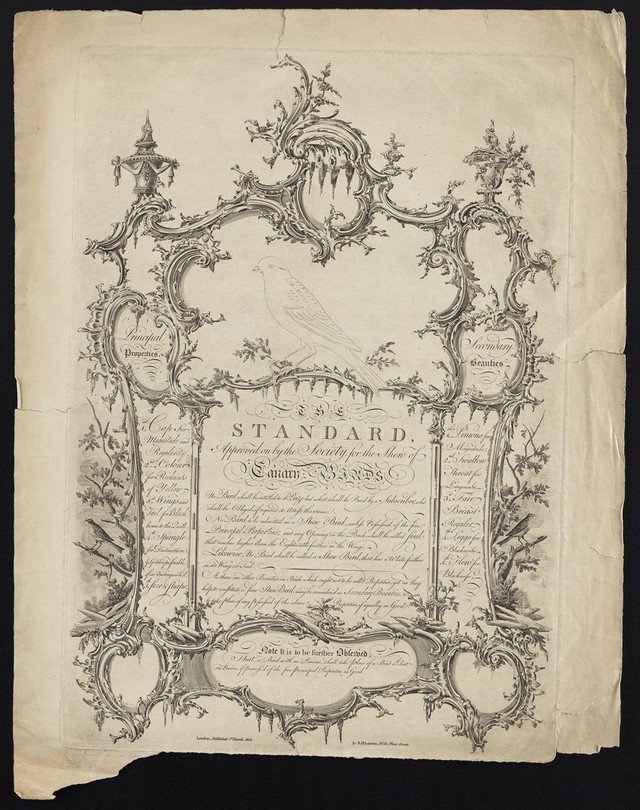 Principal
Properties
Secondary
Beauties
THE
STANDARD,
Approved on by the Society, for the Show of
Canary-BIRDS
No Bird shall be entitled to a Prize but what shall be Bred by a Subscriber, who
shall be Obliged if required to attest the same.
No Bird to be admitted as a Show Bird, unless Possessed of the five
Principal Properties, and any Opening on the Back, shall be called foul
that reaches higher than the Eighteenth feather in the Wing.
Likewise No Bird shall be called a Show Bird, that has a White feather
in its Wings or Tail.
As there are other Beauties in Birds, which ought not to be called Properties, yet as they
help to constitute a fine Show Bird, may be considered as Secondary Beauties,
to take place of any possessed of the above Properties if equally as Good.
1st Cap, for
Magnitude and
Regularity
2nd Colour
for Richness
3rd
Wings and
Tail for Black
down to the Quill
Spangle
for Distinction
5 Size & Shape
1st Pinions for
Magnitude
2nd Swallow
Throat for
3rd Fair
Breast
Regular
4 Leggs for
Blackness
5th Flue for
Blackness
Note It is to be further Observed
That a Bird with no Pinions, shall take place of a Bird that
has Pinions if possess'd of the five principal Properties as good
London, Published 1st March
Fleet Street